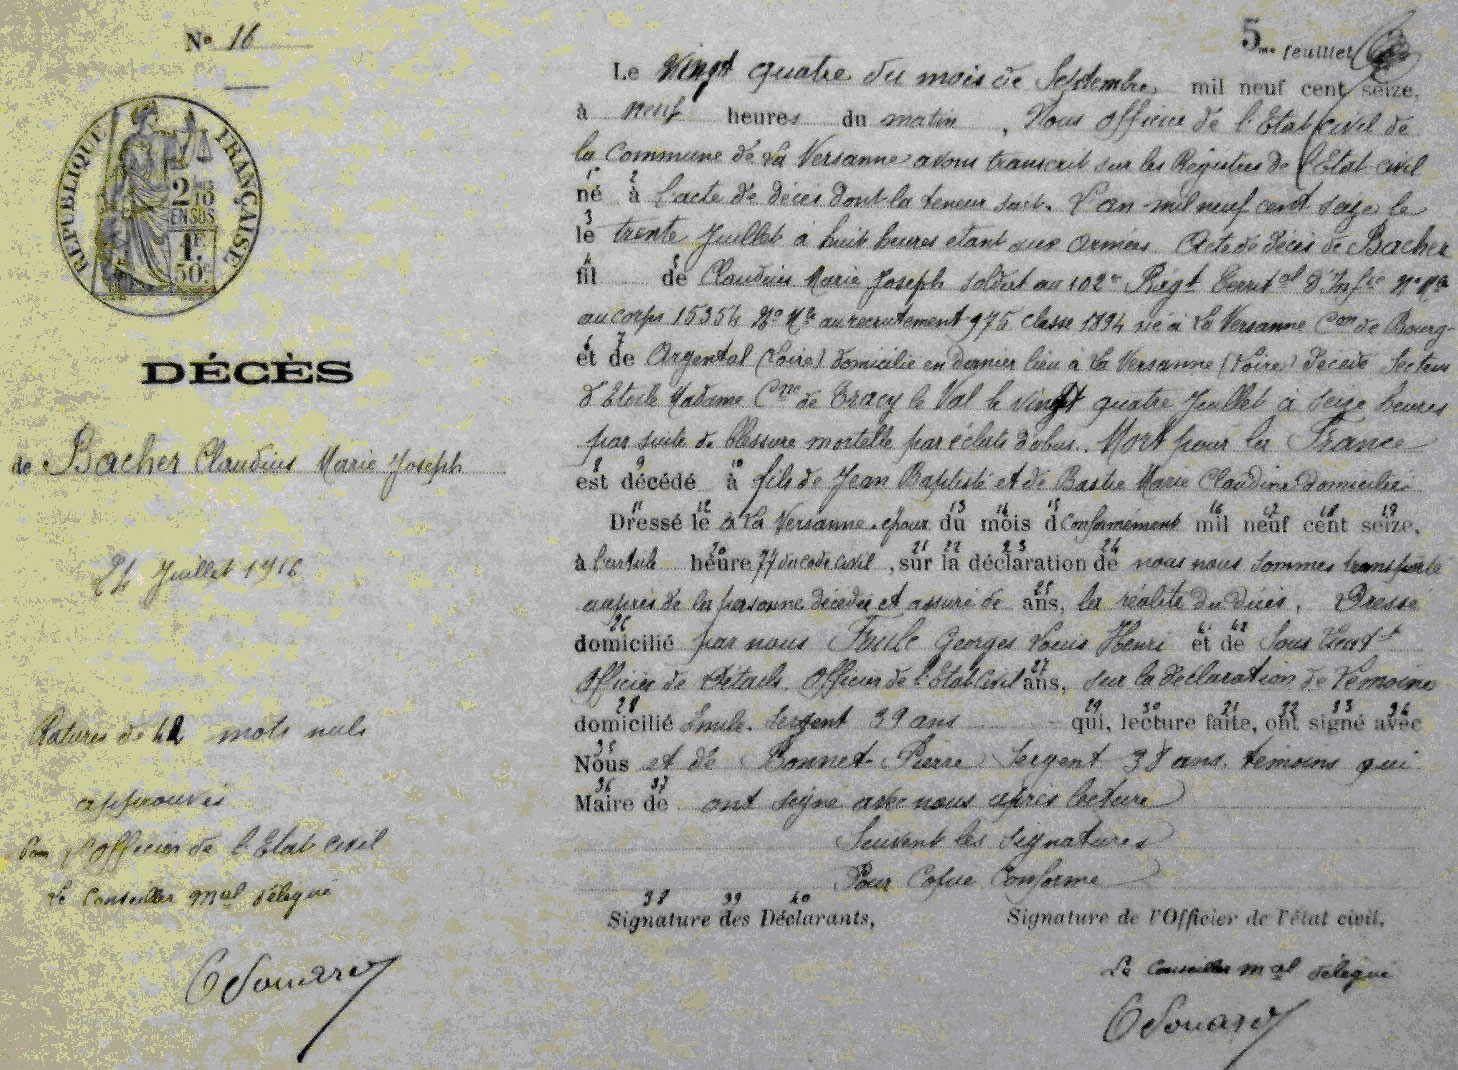 N° 16
5me feuillet
RÉPUBLIQUE FRANÇAISE
2/10
EN SUS
1F
50c
DÉCÈS
de Bacher Claudius Marie Joseph
24 Juillet 1916
Ratures de 42 mots nuls
approuvés
Pour l'Officier de l'Etat civil
Le Conseiller mal délégué
Le Vingt quatre du mois de Septembre mil neuf cent seize,
à neuf heures du matin, Nous officier de l'Etat civil de
la Commune de La Versanne avons transcrit sur les Registres de l'Etat civil
1 2
né à l'acte de décès dont la teneur suit. L'an mil neuf cent seize le
3
le trente Juillet à huit heures etant aux Armées. Acte de décès de Bacher
4 5
fil de Claudius Marie Joseph soldat au 102e Régt Territal d'Infie No Mle
au corps 15354 No Mle au recrutement 975 classe 1894 né à La Versanne Con de Bourg-
6 7
et de Argental (Loire) domicilié en dernier lieu à La Versanne (Loire) décédé Secteur
d'Etoile Madame Cne de Tracy le Val le vingt quatre Juillet à seize heures
par suite de blessure mortelle par éclats d'obus. Mort pour la France
8 9 10
est décédé à fils de Jean Baptiste et de Bastre Marie Claudine domiciliés
11 12 13 14 15 16 17 18 19
Dressé le à La Versanne. époux du mois d Conformément mil neuf cent seize,
20 21 22 23 24
à l'article heure 77 du code civil, sur la déclaration de nous nous sommes transporté
25
auprès de la personne décédée et assuré de ans, la réalité du décès. Dressé
26 41 42
domicilié par nous Georges Louis Henri et de Sous Lieutt
27
Officier de Détails Officier de l'Etat Civil ans, sur la déclaration de Lemoine
28 29 30 31 32 33 34
domicilié Emile. Sergent 39 ans qui, lecture faite, ont signé avec
35
Nous et de Bonnet Pierre Sergent 38 ans. témoins qui
36 37
Maire de ont signé avec nous après lecture
Suivent les signatures
Pour Copie Conforme
38 39 40
Signature des Déclarants, Signature de l'Officier de l'état civil,
Le Conseiller mal délégué